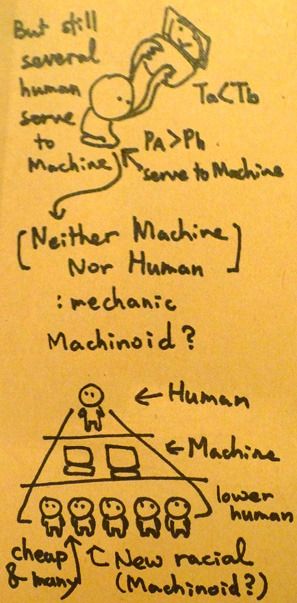 But still
several
human
serve
to
Machine
Ta<Tb
PA>Ph
serve to Machine
[Neither Machine
Nor Human]
:mechanic
Machinoid?
←Human
←Machine
lower
human
cheap
&many
New racial
(Machinoid?)